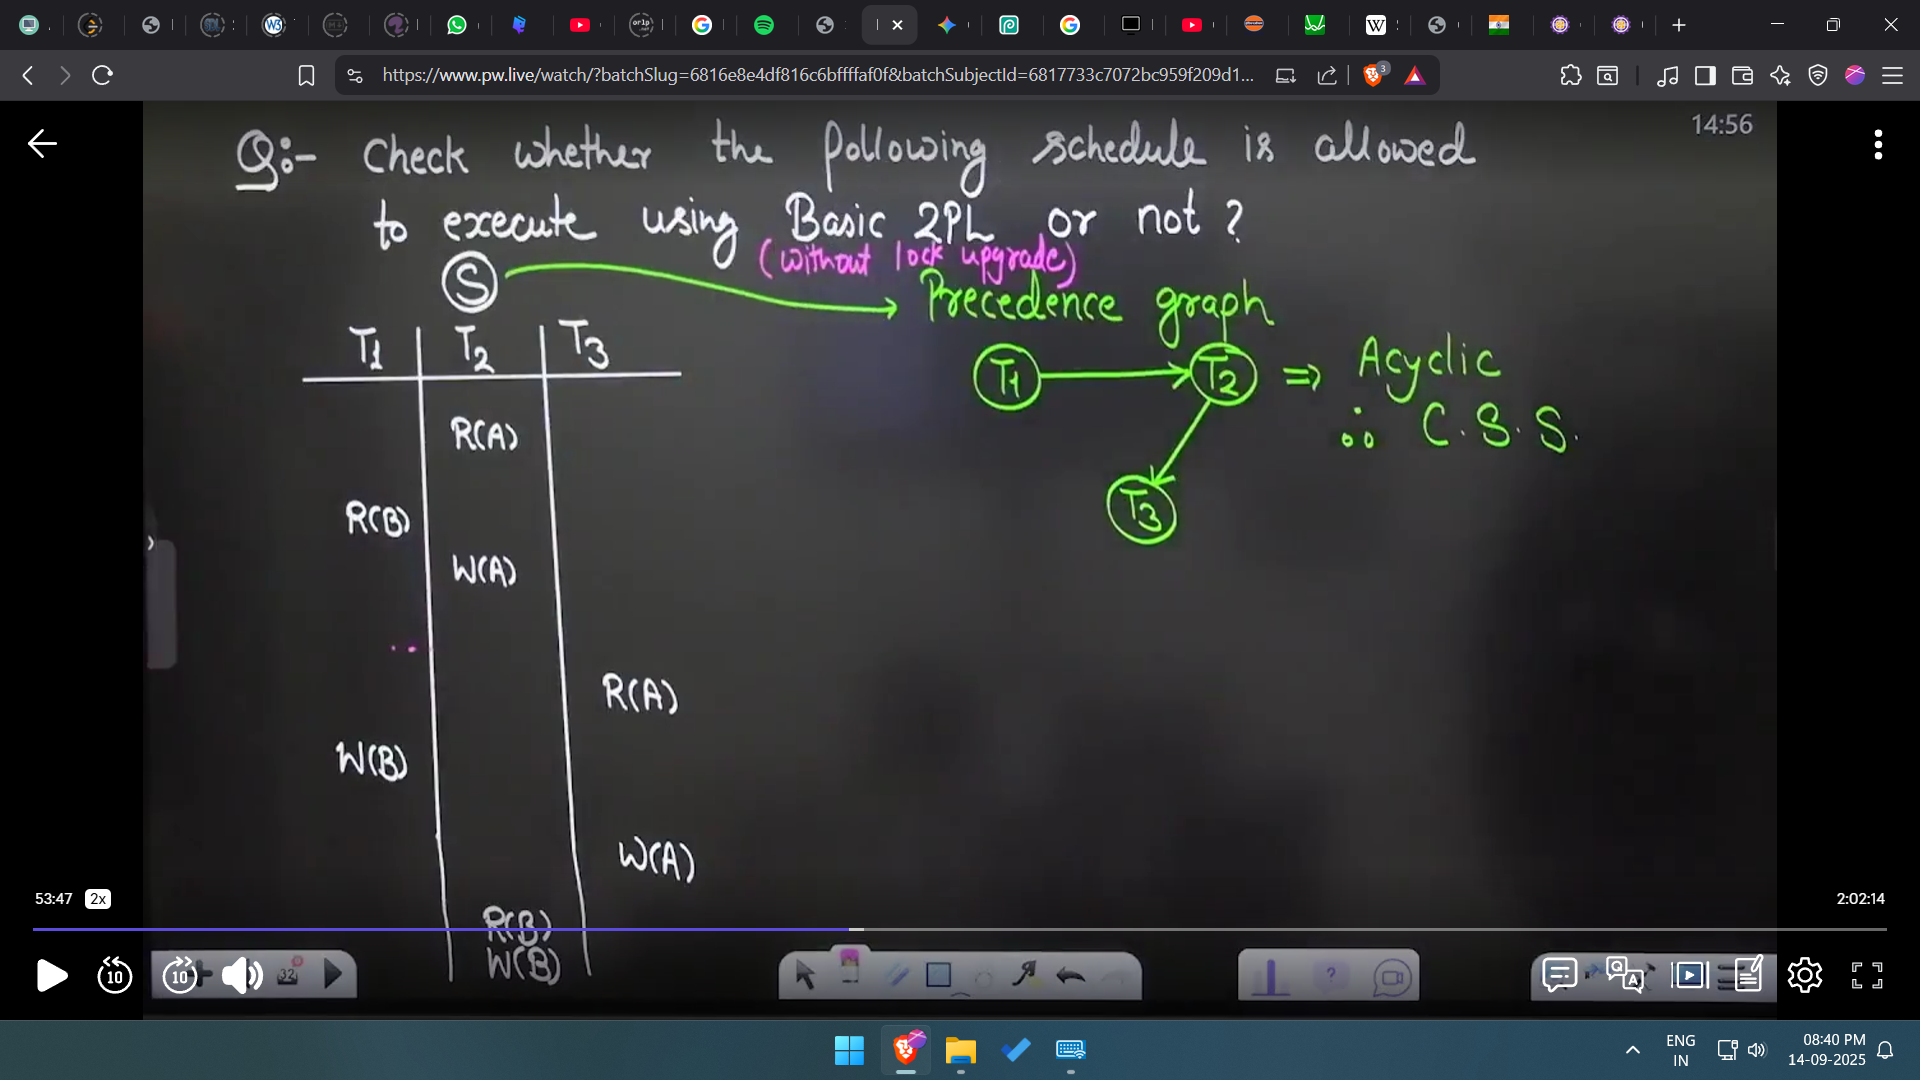 https://www.pw.live/watch/?batchSlug=6816e8e4df816c6bffffaf0f&batchSubjectId=6817733c7072bc959f209d1...
3
14:56
Q:- Check whether the following schedule is allowed
to execute using Basic 2PL or not ?
(without lock upgrade)
S
Precedence graph
T1 T2 T3
T1 T2 ⇒ Acyclic
∴ C.S.S.
T3
R(A)
R(B)
W(A)
R(A)
W(B)
W(A)
R(B)
W(B)
53:47 2x
2:02:14
10 10
32
ENG
IN
08:40 PM
14-09-2025